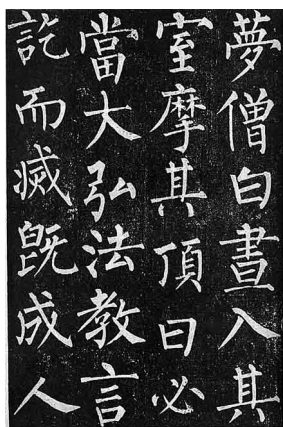 夢僧白晝入其
室摩其頂曰必
當大弘法教言
訖而滅既成人